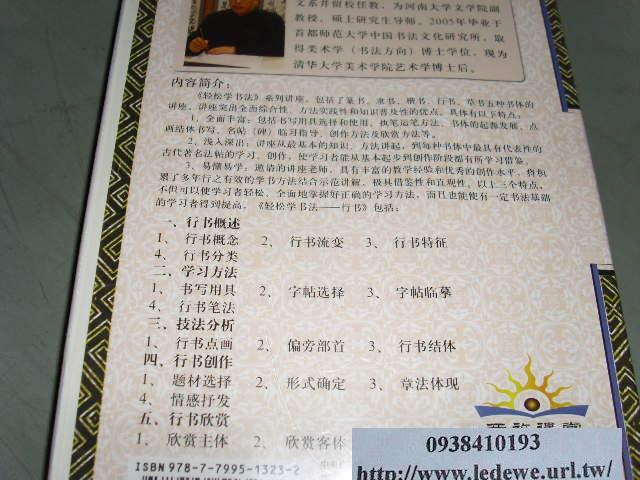 文系并留校任教，为河南大学文学院副
教授，硕士研究生导师，2005年毕业于
首都师范大学中国书法文化研究所，取
得美术学（书法方向）博士学位，现为
清华大学美术学院艺术学博士后。
内容简介：
《轻松学书法》系列讲座，包括了篆书、隶书、楷书、行书、草书五种书体的
讲座，讲座突出全面综合性、方法实践性和知识普及性的优点，具体有以下特点：
1、全面丰富：包括书写用具选择和使用、执笔运笔方法、书体的起源发展、点
画结体书写、名帖（碑）临习指导、创作方法及欣赏方法等。
2、浅入深出：讲座从最基本的知识、方法讲起，到每种书体中最具有代表性的
古代著名法帖的学习、创作，使学习者能从基本起步到创作阶段都有所学习借鉴。
3、易懂易学：邀请的讲座老师，具有丰富的教学经验和优秀的创作水平，将积
累了多年行之有效的学书方法结合示范讲解，极具借鉴性和直观性。以上三个特点，
不但可以使学习者轻松、全面地掌握好正确的学习方法，而且也能使有一定书法基础
的学习者得到提高。《轻松学书法——行书》包括：
一、行书概述
1、 行书概念 2、 行书流变 3、 行书特征
4、 行书分类
二、学习方法
1、 书写用具 2、 字帖选择 3、 字帖临摹
4、 行书笔法
三、技法分析
1、 行书点画 2、 偏旁部首 3、 行书结体
四、行书创作
1、 题材选择 2、 形式确定 3、 章法体现
4、 情感抒发
五、行书欣赏
1、 欣赏主体 2、 欣赏客体
ISBN 978-7-7995-1323-2
0938410193
http://www.ledewe.url.tw/